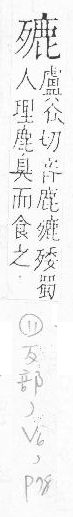 盧谷切音鹿
蜀
人理鹿臭而食之
⑪
歹部,
V6,
P78